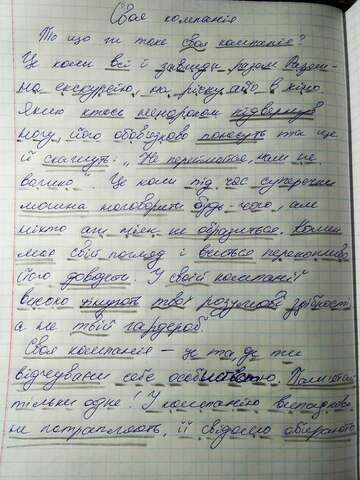 Своя компанія
То що ж таке своя компанія?
Це коли всі й завжди разом. Разом
на екскурсію, на річку або в кіно.
Якщо хтось ненароком підвернув
ногу, його обов'язково понесуть та ще
й скажуть: „Не переймайся, нам не
важко". Це коли під час суперечки
можна наговорити будь-чого, але
ніхто ані трохи не образиться. Кожен
має свій погляд і вміє переконливо
його довести. У своїй компанії
високо цінують твої розумові здібності,
а не твій гардероб.
Своя компанія – це та, де ти
відчуваєш себе особистістю. Пам'ятай
тільки одне! У компанію випадково
не потрапляють, її свідомо обирають